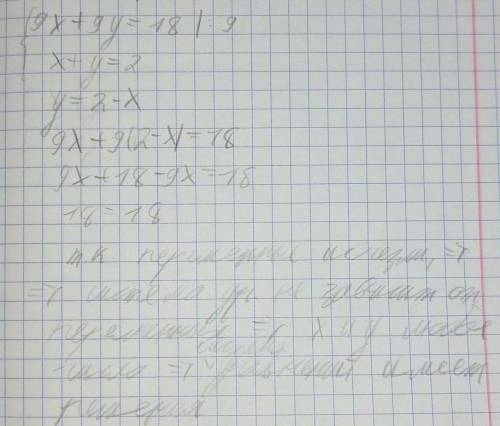 {9x + 9y = 18 | : 9
x + y = 2
y = 2 - x
9x + 9(2 - x) = 18
9x + 18 - 9x = 18
18 = 18
т.к. переменные исчезли, =>
=> система ур. не зависит от
переменных => x и y любые
система
числа => уравнений имеет
решения